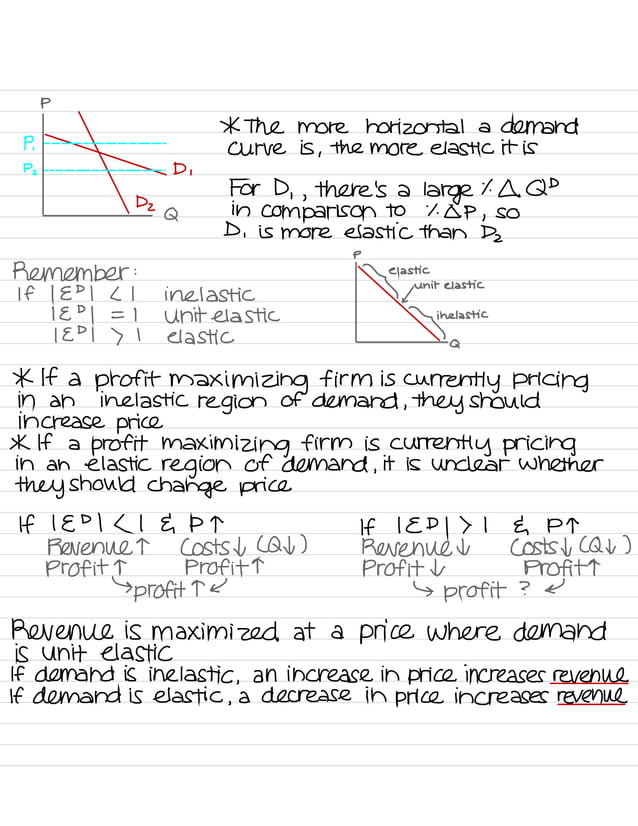 P
P₁
P₂
D₁
D₂
Q
* The more horizontal a demand
curve is, the more elastic it is
For D₁, there's a large % Δ Qᴰ
in comparison to % ΔP, so
D₁ is more elastic than D₂
Remember:
If |Ɛᴰ| < 1 inelastic
|Ɛᴰ| = 1 unit elastic
|Ɛᴰ| > 1 elastic
P
elastic
unit elastic
inelastic
Q
* If a profit maximizing firm is currently pricing
in an inelastic region of demand, they should
increase price
* If a profit maximizing firm is currently pricing
in an elastic region of demand, it is unclear whether
they should change price
If |Ɛᴰ| < 1 & P↑
Revenue↑ Costs↓ (Q↓)
Profit↑ Profit↑
↳profit↑↲
If |Ɛᴰ| > 1 & P↑
Revenue↓ Costs↓ (Q↓)
Profit↓ Profit↑
↳ profit ? ↲
Revenue is maximized at a price where demand
is unit elastic
If demand is inelastic, an increase in price increases revenue
If demand is elastic, a decrease in price increases revenue